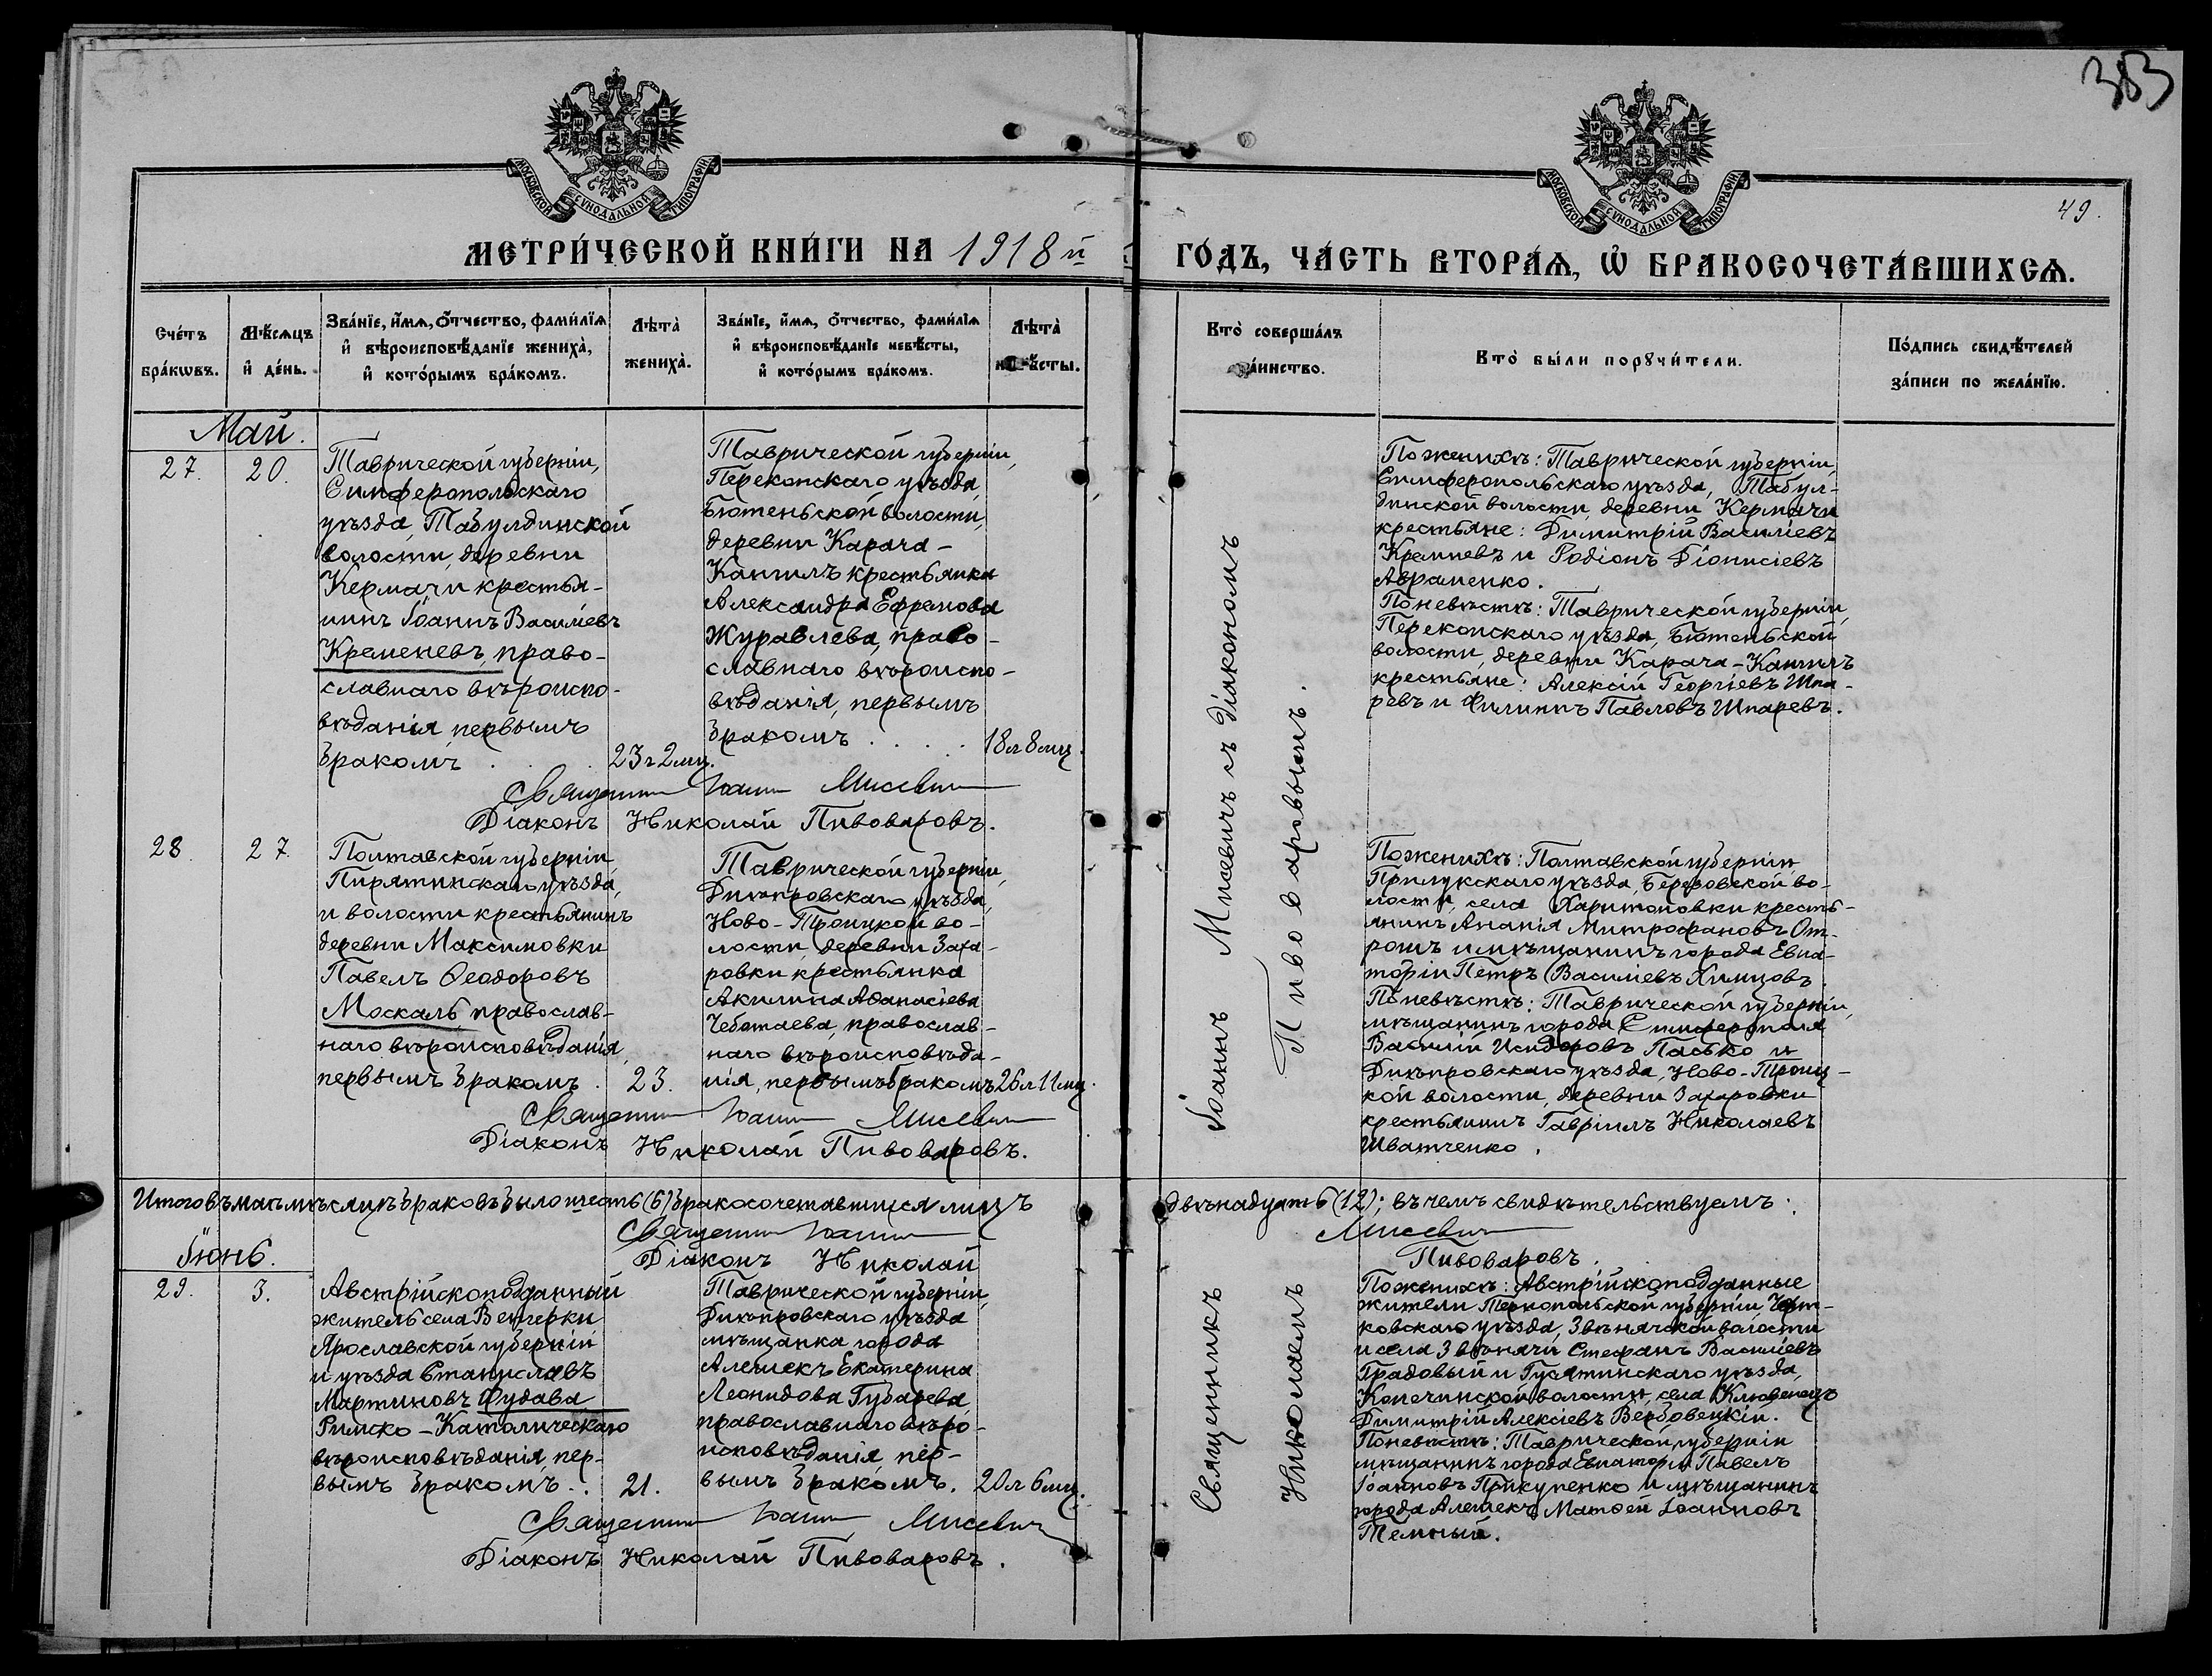 383
49.
МОСКОВСКОЙ СѴНОДАЛЬНОЙ ТИПОГРАФІИ
МОСКОВСКОЙ СѴНОДАЛЬНОЙ ТИПОГРАФІИ
МЕТРИ́ЧЕСКОЙ КНИ́ГИ НА 1918 й
ГО́ДЪ, ЧА́СТЬ ВТОРА́Ѧ, Ѡ҆ БРАКОСОЧЕТА́ВШИХСѦ.
Сче́тъ
бра́кѡвъ.
Мѣ́сяцъ
и҆ де́нь.
Зва́нїе, и҆́мѧ, ѻ҆́тчество, фами́лїѧ
и҆ вѣроисповѣ́данїе жениха̀,
и҆ кото́рымъ бра́комъ.
Лѣта̀
жениха̀.
Зва́нїе, и҆́мѧ, ѻ҆́тчество, фами́лїѧ
и҆ вѣроисповѣ́данїе невѣ́сты,
и҆ кото́рымъ бра́комъ.
Лѣта̀
невѣ́сты.
Кто̀ соверша́лъ
та́инство.
Кто̀ бы́ли порꙋчи́тели.
По́дпись свидѣ́телей
за́писи по жела́нїю.
Май.
27.
20.
Таврической губерніи,
Симферопольскаго
уѣзда, Табулдинской
волости, деревни
Кермачи крестья-
нинъ Іоаннъ Василіевъ
Кременевъ, право-
славнаго вѣроиспо-
вѣданія, первымъ
бракомъ . . .
23 г 2 мц.
Таврической губерніи,
Перекопскаго уѣзда,
Бютеньской волости,
деревни Карача-
Кангилъ крестьянка
Александра Ефремова
Журавлева, право-
славнаго вѣроиспо-
вѣданія, первымъ
бракомъ . . . .
18 л 8 мц.
По женихѣ: Таврической губерніи,
Симферопольскаго уѣзда, Табул-
динской волости, деревни Кермачи
крестьяне: Димитрій Василіевъ
Кремневъ и Родіонъ Діонисіевъ
Авраменко.
По невѣстѣ: Таврической губерніи,
Перекопскаго уѣзда, Бютеньской
волости, деревни Карача-Кангилъ
крестьяне: Алексій Георгіевъ Шпа-
ревъ и Филиппъ Павловъ Шпаревъ.
Священникъ Іоаннъ Мисевичъ
Діаконъ Николай Пивоваровъ.
28.
27.
Полтавской губерніи,
Пирятинскаго уѣзда,
и волости крестьянинъ
деревни Максимовки
Павелъ Ѳеодоровъ
Москаль православ-
наго вѣроисповѣданія,
первымъ бракомъ .
23.
Таврической губерніи,
Днѣпровскаго уѣзда,
Ново-Троицкой во-
лости, деревни Заха-
ровки крестьянка
Акилина Аѳанасіева
Чеботаева, православ-
наго вѣроисповѣда-
нія, первымъ бракомъ
26 л 11 мц.
По женихѣ: Полтавской губерніи,
Прилукскаго уѣзда, Березовской во-
лости, села Харитоновки кресть-
янинъ Ананія Митрофановъ От-
рошъ и мѣщанинъ города Евпа-
торіи Петръ Василіевъ Химцовъ.
По невѣстѣ: Таврической губерніи,
мѣщанинъ города Симферополя
Василій Исидоровъ Пасько и
Днѣпровскаго уѣзда, Ново-Троиц-
кой волости, деревни Захаровки
крестьянинъ Гавріилъ Николаевъ
Шватченко.
Священникъ Іоаннъ Мисевичъ
Діаконъ Николай Пивоваровъ.
Священникъ Іоаннъ Мисевичъ съ діакономъ
Николаемъ Пивоваровымъ.
Итого въ маѣ мѣсяцѣ браковъ было шесть (6) бракосочетавшихся лицъ двѣнадцать (12); въ чемъ свидѣтельствуемъ:
Священникъ Іоаннъ Мисевичъ
Діаконъ Николай Пивоваровъ.
Іюнь.
29.
3.
Австрійскоподданный
житель села Венгерки
Ярославской губерніи
и уѣзда Станиславъ
Мартиновъ Фудава
Римско-Католическаго
вѣроисповѣданія, пер-
вымъ бракомъ . .
21.
Таврической губерніи,
Днѣпровскаго уѣзда
мѣщанка города
Алешекъ Екатерина
Леонидова Губарева,
православнаго вѣро-
исповѣданія, пер-
вымъ бракомъ.
20 л 6 мц.
По женихѣ: Австрійскоподданные
жители Тернопольской губерніи, Чорт-
ковскаго уѣзда, Звѣнячской волости
и села Звѣнячи Стефанъ Василіевъ
Градовый и Гусятинскаго уѣзда,
Копечинской волости, села Клювенецъ
Димитрій Алексіевъ Вербовецкій.
По невѣстѣ: Таврической губерніи
мѣщанинъ города Евпаторіи Павелъ
Іоанновъ Прикупенко и мѣщанинъ
города Алешекъ Матѳей Іоанновъ
Темный.
Священникъ Іоаннъ Мисевичъ
Діаконъ Николай Пивоваровъ.